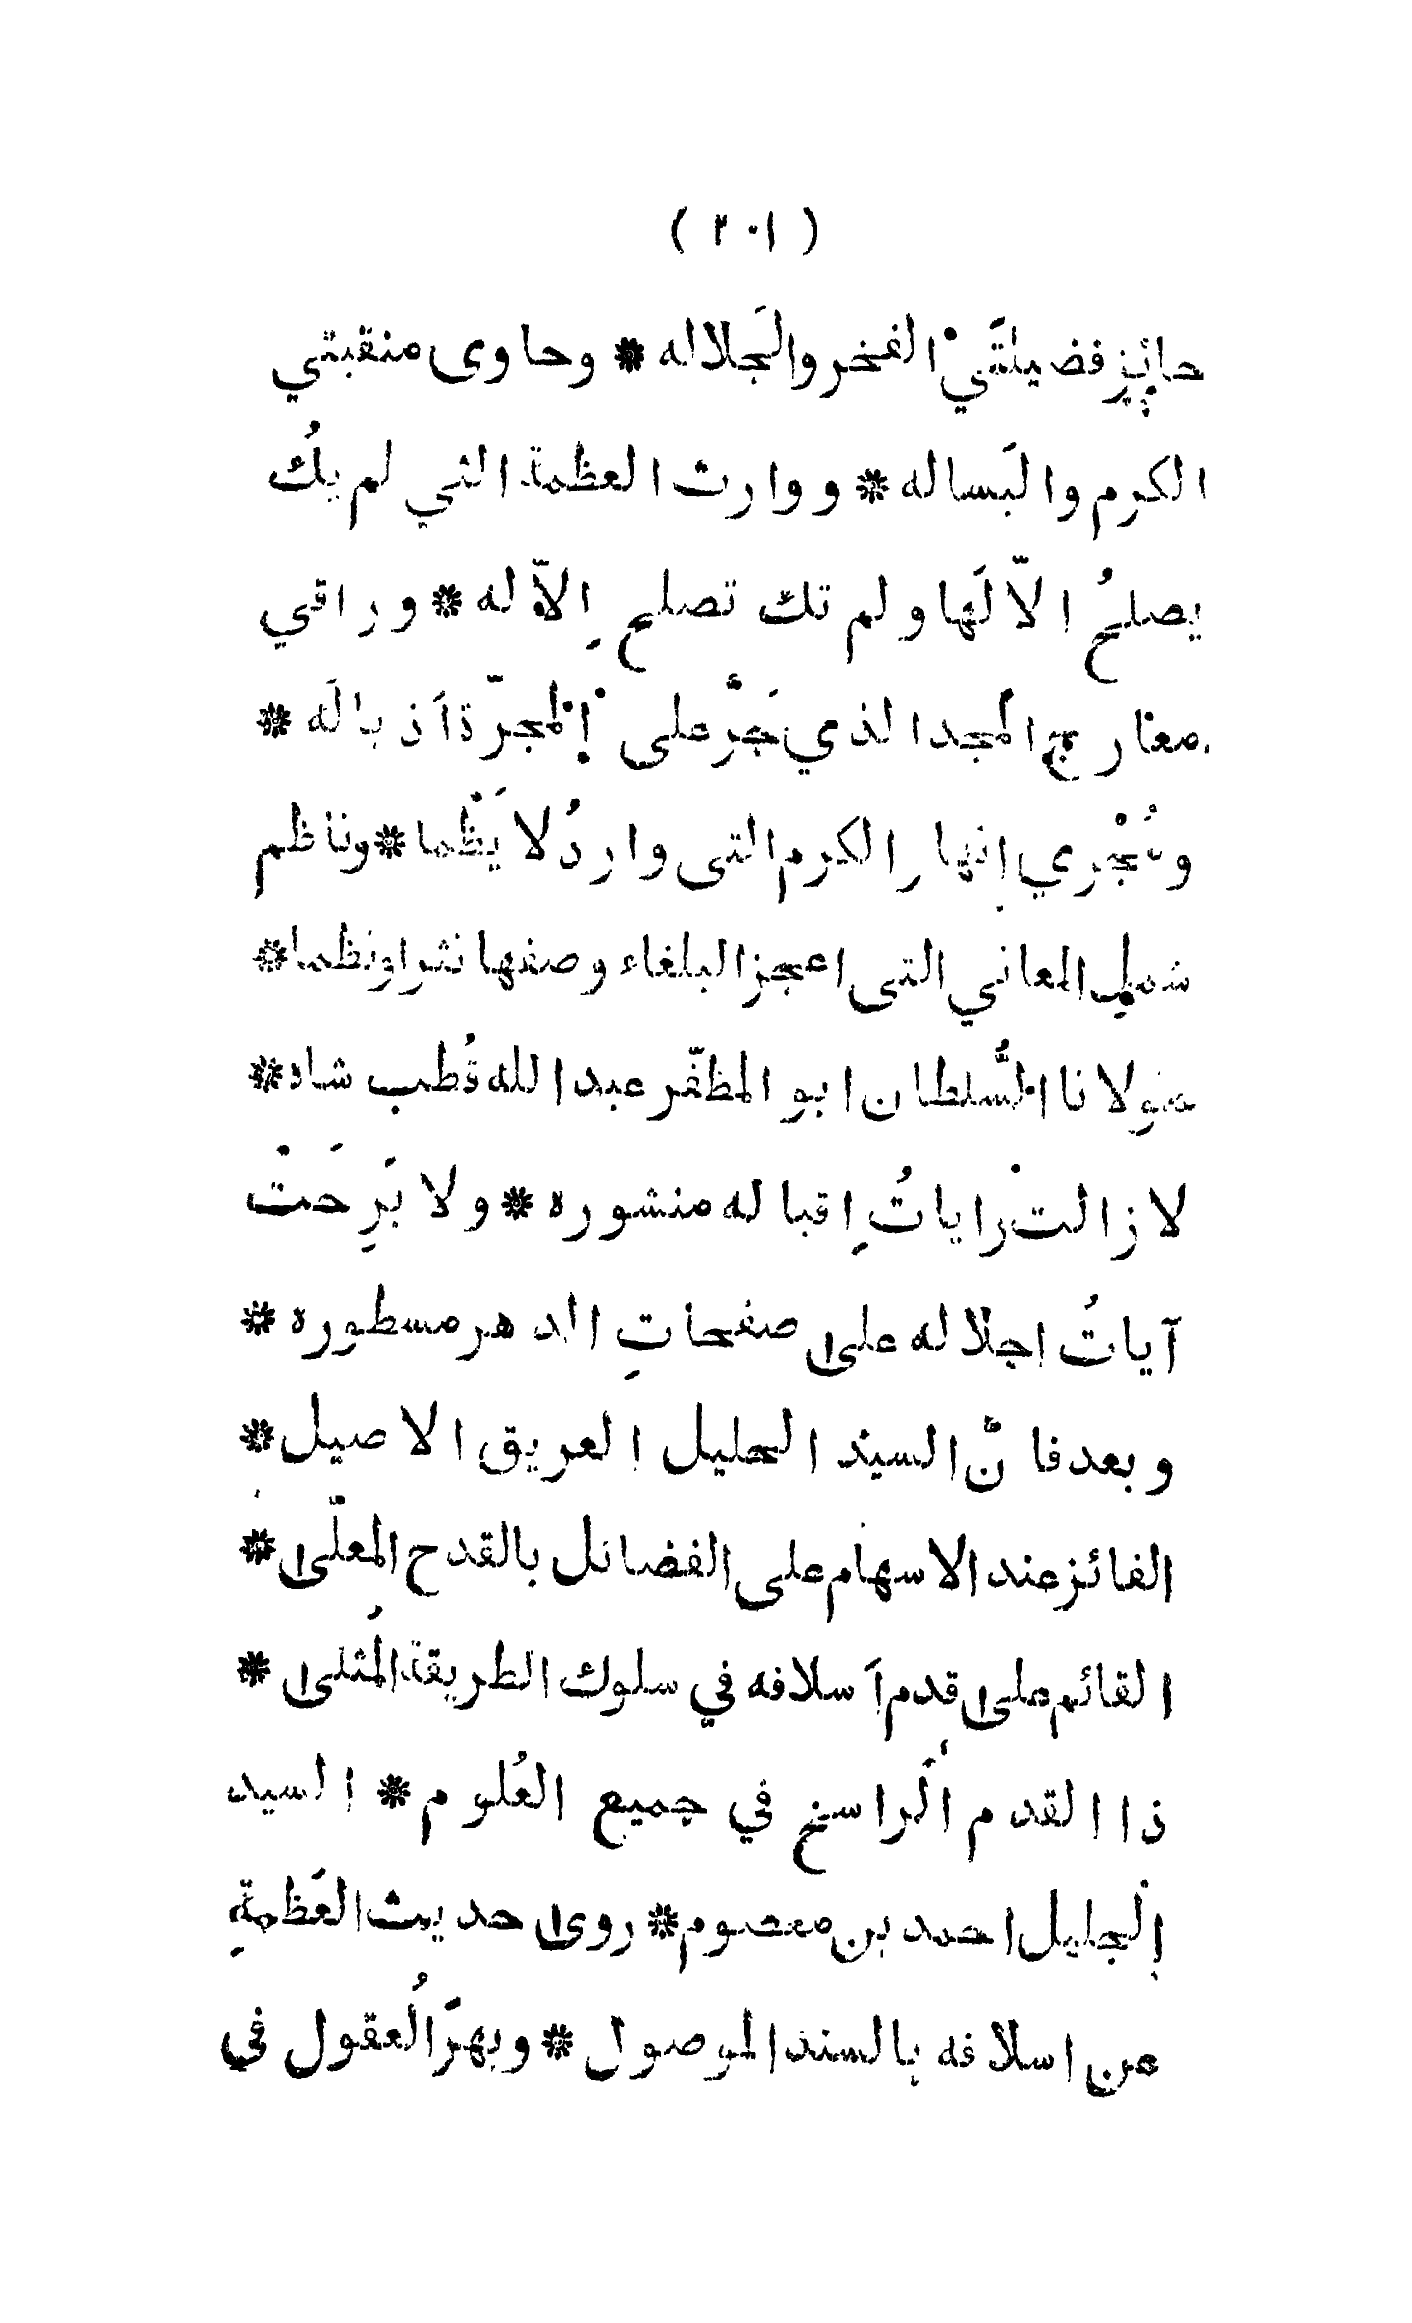 ( ٢٠١ )
حائز فضيلتَي الفخر والجَلاله * وحاوى منقبتي
الكرم والبَساله * ووارث العظمة التي لم يكُ
يصلحُ الّا لَها ولم تك تصلح إِلاّ له * وراقي
معارج المجد الذي جَرَّ على المجرّة اَذ يالَه *
ومُجْري انهار الكرم التى واردُ لا يَظْما * وناظم
شملِ المعاني التى اعجز البلغاء وصفها نثرا ونظما *
مولانا السُّلطان ابو المظفّر عبد الله قُطب شاه *
لا زالت راياتُ إِقباله منشوره * ولا بَرِحَتْ
آياتُ اجلاله على صفحاتِ الدهر مسطوره *
وبعد فانّ السيد الجليل العريق الاصيل *
الفائز عند الاسهام على الفضائل بالقدح المعلّى *
القائم على قدم اَسلافه في سلوك الطريقة المُثلى *
ذا القدم الراسخ في جميع العُلوم * السيد
الجليل احمد بن معصوم * روى حديث العَظمةِ
عن اسلافه بالسند الموصول * وبهَر العُقول في